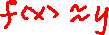 f(x) ≈ y